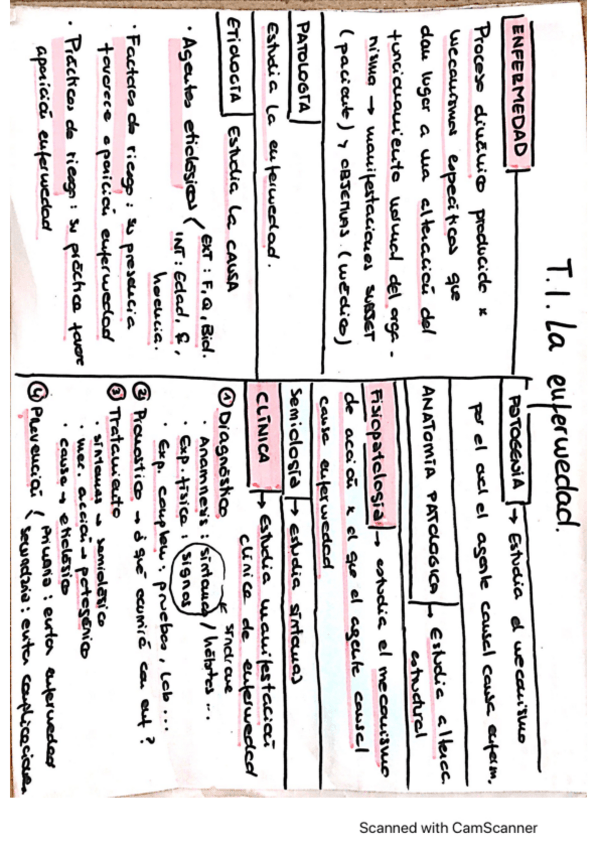 T.1. La enfermedad.
ENFERMEDAD
Proceso dinámico producido x
mecanismos específicos que
dan lugar a una alteración del
funcionamiento normal del orga-
nismo → manifestaciones SUBJET
(paciente) y OBJETIVAS (médico)
PATOLOGÍA
Estudia la enfermedad.
ETIOLOGÍA Estudia la CAUSA
· Agentes etiológicos ( EXT: F, Q, Biol.
INT: Edad,
herencia.
· Factores de riesgo: su presencia
favorece aparición enfermedad
· Prácticas de riesgo: su práctica favore
aparición enfermedad
PATOGENIA → Estudia el mecanismo
por el cual el agente causal causa enferm.
ANATOMÍA PATOLÓGICA → Estudia alterac.
estructural
Fisiopatología → estudia el mecanismo
de acción x el que el agente causal
causa enfermedad
Semiología → Estudia síntomas
CLÍNICA → Estudia manifestación
clínica de enfermedad
① Diagnóstico síndrome
· Anamnesis: síntomas / hábitos...
· Exp. física: signos
· Exp. complem: pruebas, lab...
② Pronóstico → ¿qué ocurrirá con enf?
③ Tratamiento
· síntomas → semiológico
· mec. acción → patogénico
· causa → etiológico
④ Prevención ( Primaria: evitar enfermedad
Secundaria: evitar complicaciones
Scanned with CamScanner